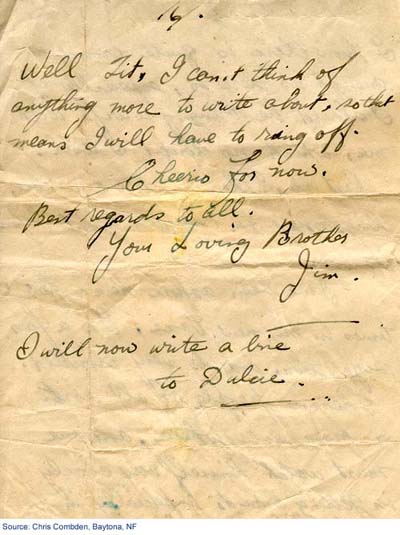 Well Tit, I can.t think of
anything more to write about, so that
means I will have to ring off.
Cheerio for now.
Best regards to all.
Your Loving Brother
Jim.
I will now write a line
to Dulcie.
Source: Chris Combden, Baytona, NF